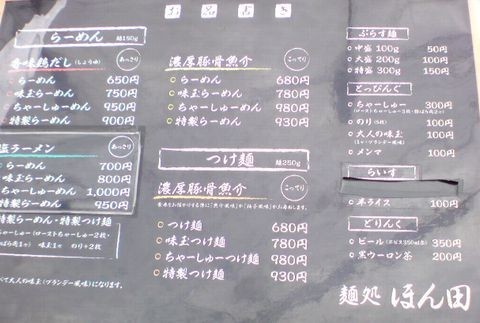 お品書き
らーめん 麺150g
香味鶏だし(しょうゆ) あっさり
らーめん 650円
味玉らーめん 750円
ちゃーしゅーめん 950円
特製らーめん 900円
塩ラーメン あっさり
らーめん 700円
味玉らーめん 800円
ちゃーしゅーめん 1,000円
特製らーめん 950円
特製らーめん・特製つけ麺
味玉1ヶ のり2枚
べて大人の味玉(ブランデー風味)になります。
濃厚豚骨魚介 こってり
らーめん 680円
味玉らーめん 780円
ちゃーしゅーめん 980円
特製らーめん 930円
つけ麺 麺250g
濃厚豚骨魚介 こってり
つけ麺 680円
味玉つけ麺 780円
ちゃーしゅーつけ麺 980円
特製つけ麺 930円
ぷらす麺
中盛 100g 50円
大盛 200g 100円
特盛 300g 150円
とっぴんぐ
ちゃーしゅー 300円
のり(5枚) 100円
大人の味玉 100円
(1ヶ・ブランデー風味)
メンマ 100円
らいす
半ライス 100円
どりんく
ビール(ヱビス350ml缶) 350円
黒ウーロン茶 200円
麺処 ほん田